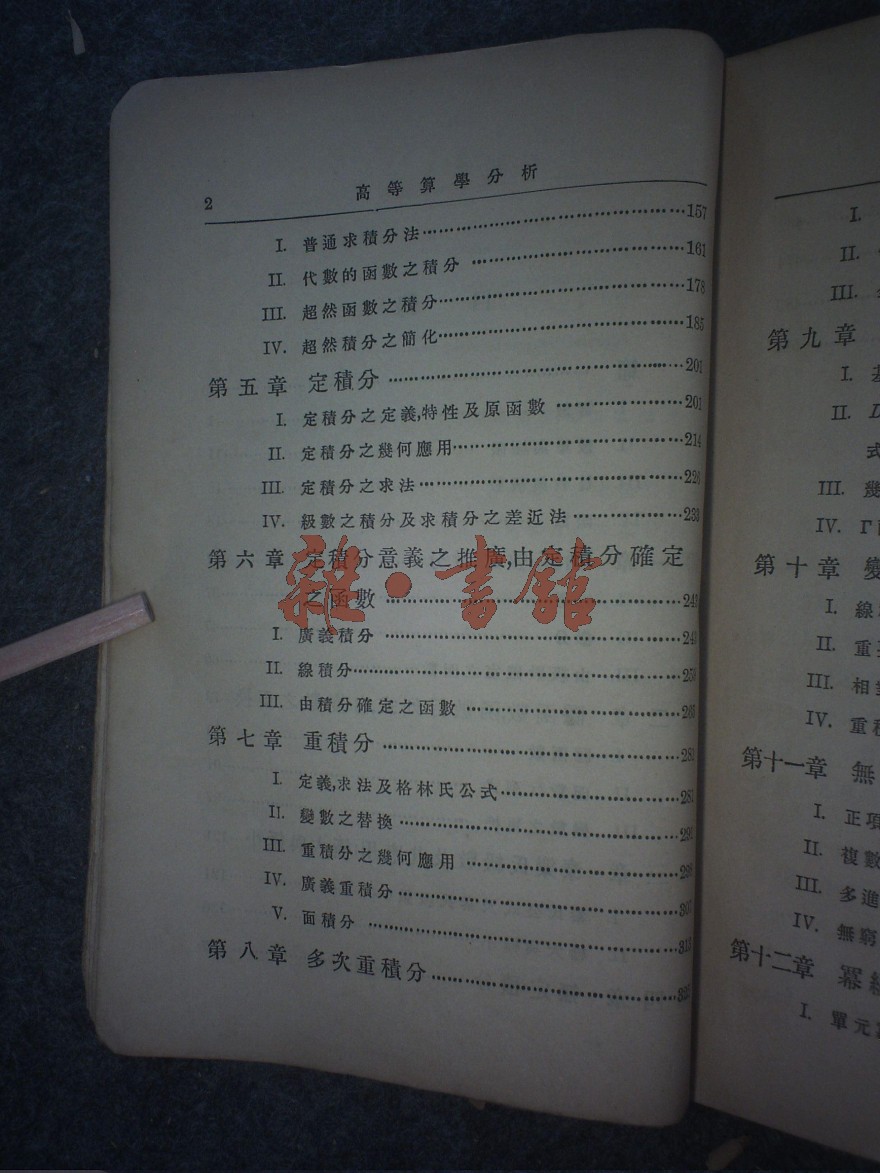 2 高等算學分析
I. 普通求積分法 157
II. 代數的函數之積分 161
III. 超然函數之積分 178
IV. 超然積分之簡化 185
第五章 定積分 201
I. 定積分之定義,特性及原函數 201
II. 定積分之幾何應用 214
III. 定積分之求法
IV. 級數之積分及求積分之差近法
第六章 定積分意義之推廣,由定積分確定
之函數
I. 廣義積分
II. 線積分
III. 由積分確定之函數 265
第七章 重積分
I. 定義,求法及格林氏公式
II. 變數之替換
III. 重積分之幾何應用
IV. 廣義重積分 307
V. 面積分
第八章 多次重積分
雜·書館
I.
II.
III.
第九章
I.
II.
III. 幾
IV. Γ
第十章 變
I. 線
II. 重
III. 相
IV. 重
第十一章 無
I. 正項
II. 複數
III. 多進
IV. 無窮
第十二章 冪
I. 單元